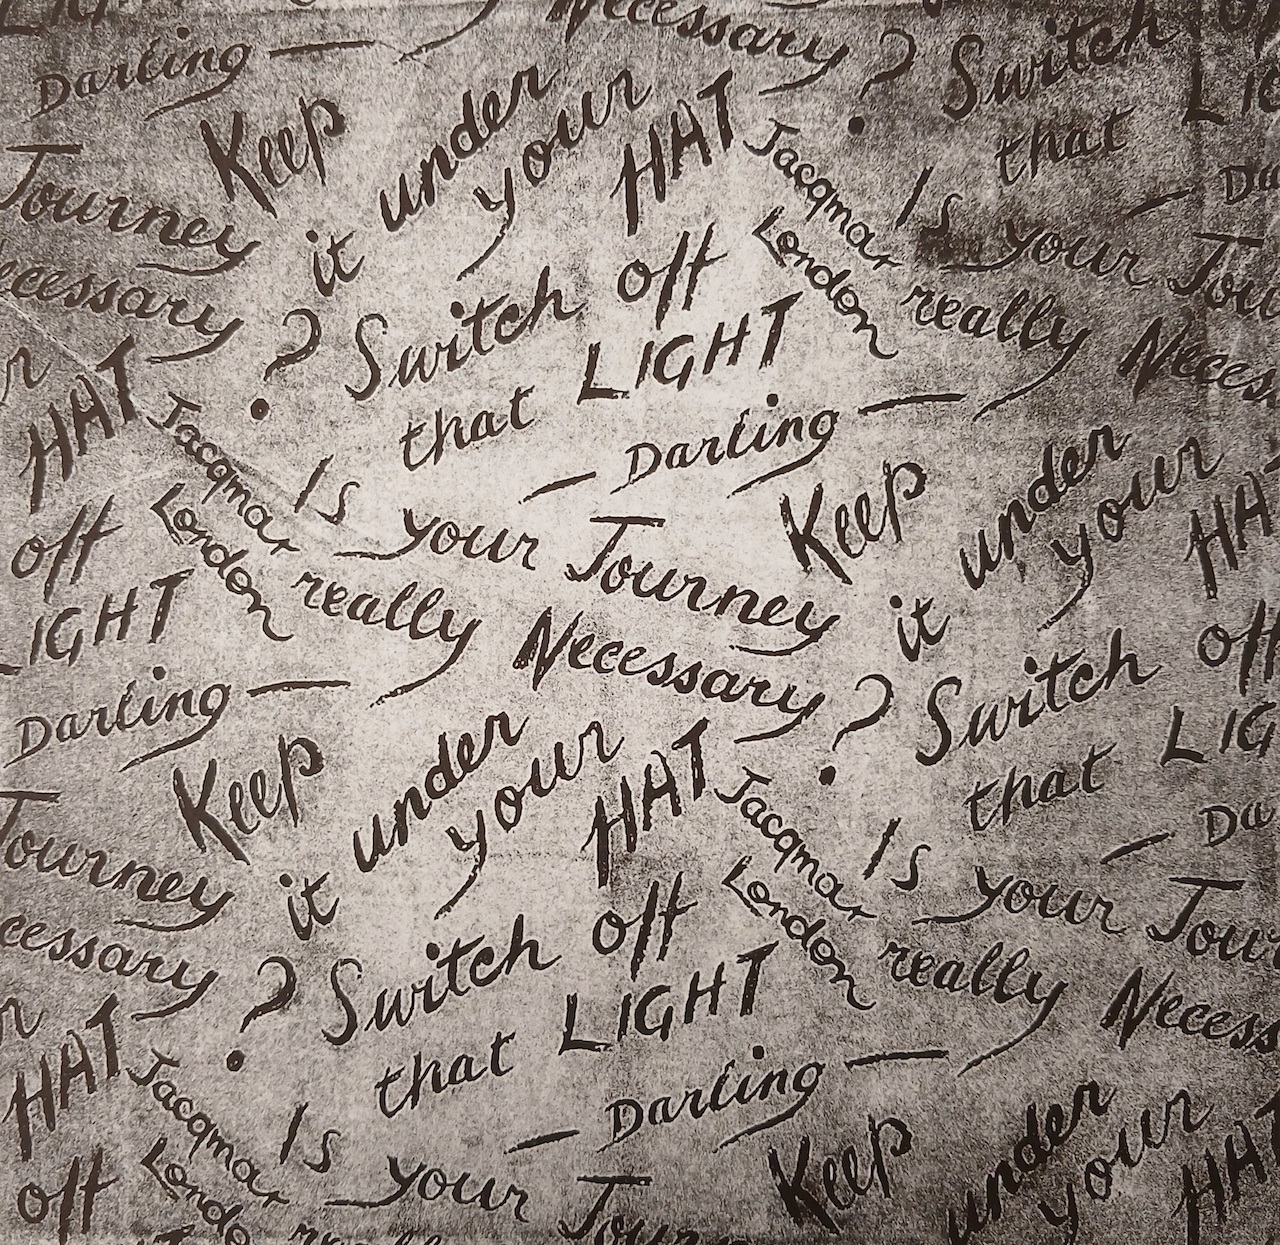 Necessary ?
Darling —
Switch
that
Keep
it under
your
HAT
Jacqmar
London
Journey
ecessary
?
Is your Jou
really
Neces
Switch off
that LIGHT
— Darling —
HAT
Jacqmar
London
Is your Journey
really Necessary ?
Keep
it under
your
HA
off
IGHT
Darling —
Switch off
that LIG
— Da
Keep
it under
your
HAT
Jacqmar
London
Journey
cessary
?
Is your Jour
really
Necess
Switch off
that LIGHT
— Darling —
HAT
Jacqmar
Londo
Is your Jour
Keep
under
your
HA
off